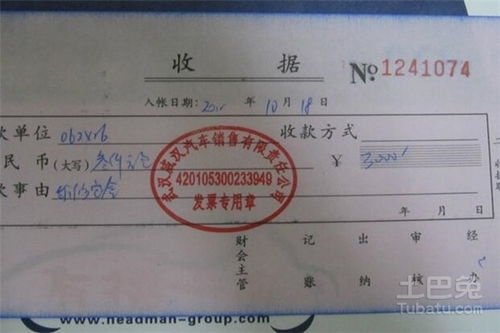 收 据
No 1241074
入帐日期: 年 10 月 18 日
款单位
收款方式
民 币(大写) 叁仟元
¥ 3000
款事由
年 月 日
武汉威汉汽车销售有限责任公司
420105300233949
发票专用章
财会主管 记账 出纳 审核 经办
土巴兔
Tubatu.com
www.headman-group.com